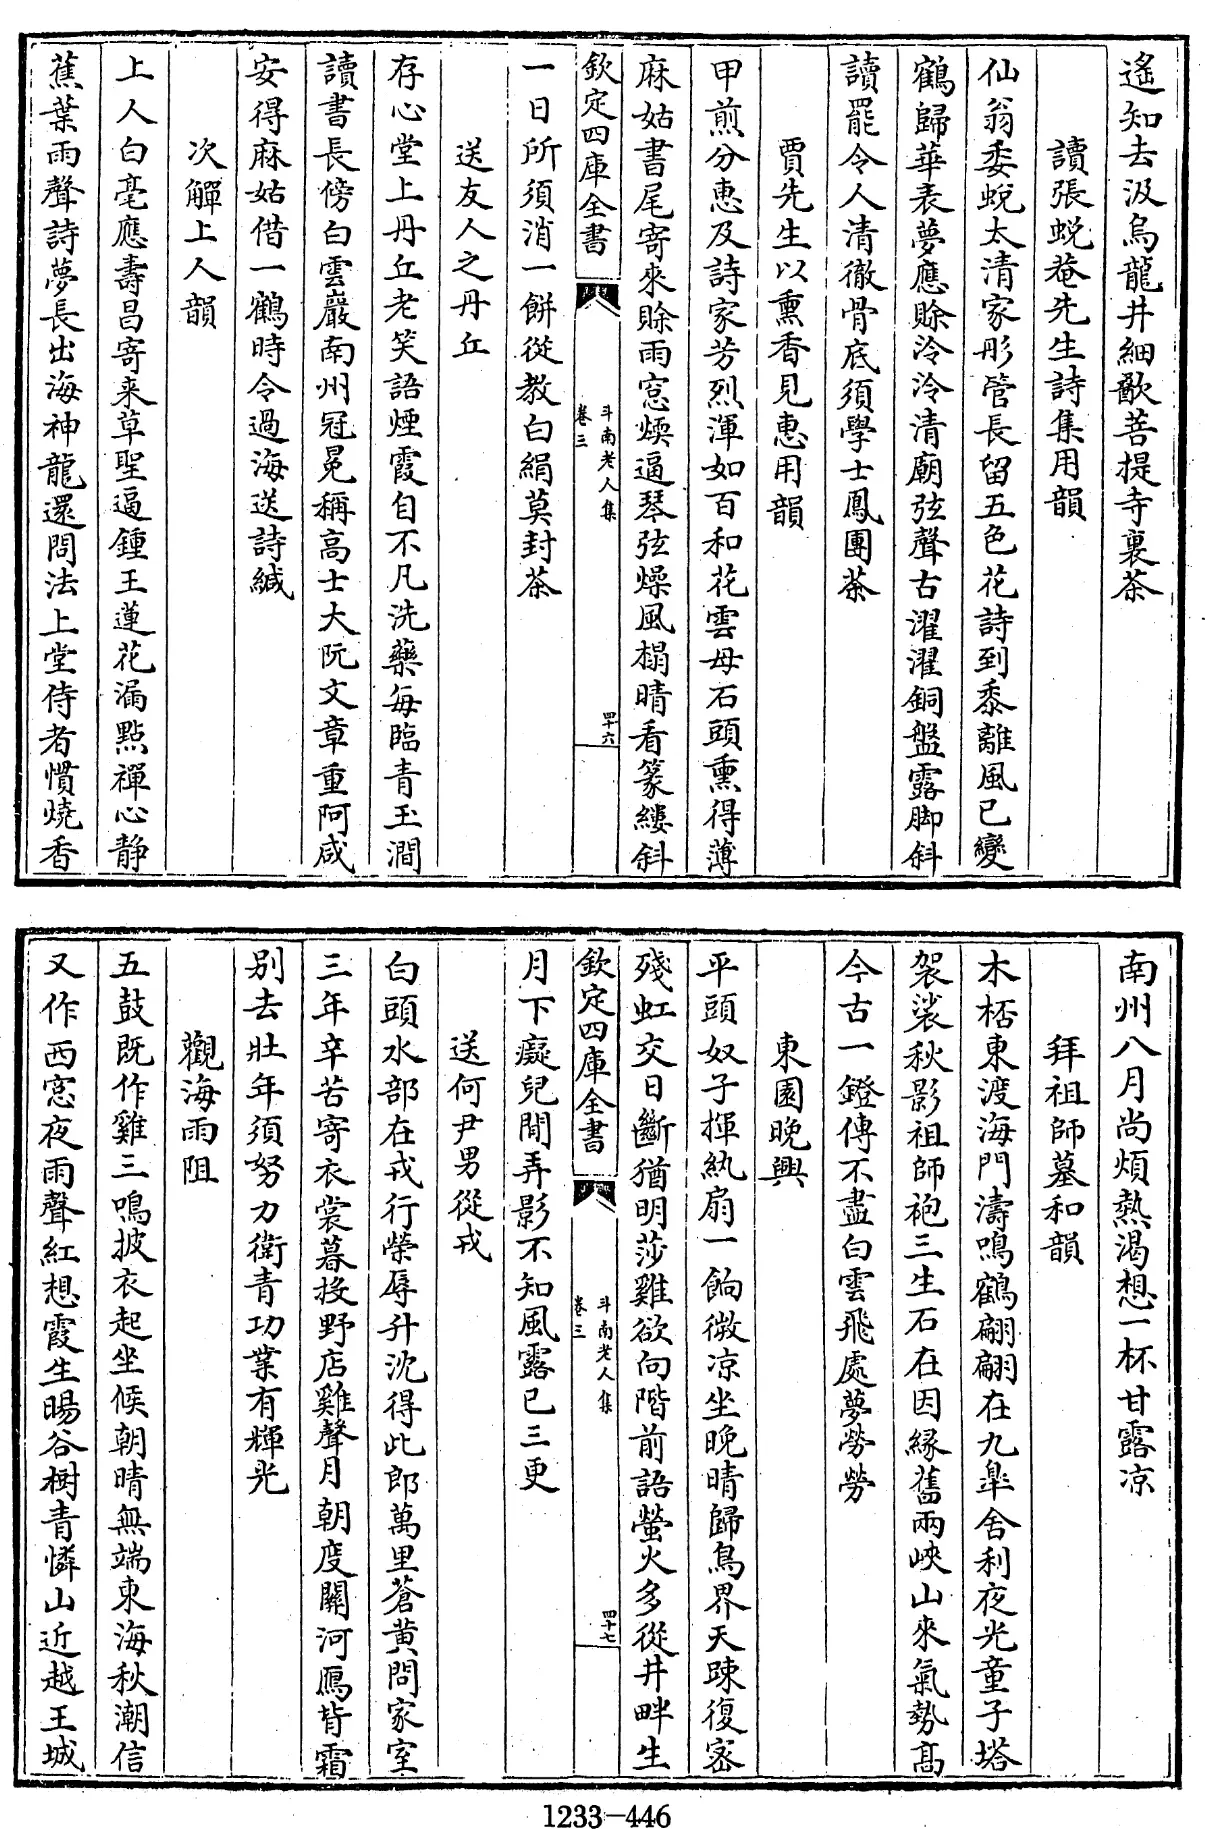 遙知去汲烏龍井細歠菩提寺裏茶
讀張蛻菴先生詩集用韻
仙翁委蛻太清家彤管長留五色花詩到黍離風已變
鶴歸華表夢應賒泠泠清廟弦聲古濯濯銅盤露脚斜
讀罷令人清徹骨底須學士鳳團茶
賈先生以熏香見惠用韻
甲煎分惠及詩家芳烈渾如百和花雲母石頭熏得薄
麻姑書尾寄來賒雨窓煗逼琴弦燥風榻晴看篆縷斜
欽定四庫全書
斗南老人集
卷三
四十六
一日所須消一餅從教白絹莫封茶
送友人之丹丘
存心堂上丹丘老笑語煙霞自不凡洗藥每臨青玉澗
讀書長傍白雲巖南州冠冕稱高士大阮文章重阿咸
安得麻姑借一鶴時令過海送詩緘
次觶上人韻
上人白毫應壽昌寄来草聖逼鍾王蓮花漏點禪心静
蕉葉雨聲詩夢長出海神龍還問法上堂侍者慣燒香
南州八月尚煩熱渴想一杯甘露凉
拜祖師墓和韻
木桮東渡海門濤鳴鶴翩翩在九臯舍利夜光童子塔
袈裟秋影祖師袍三生石在因緣舊兩峽山來氣勢髙
今古一鐙傳不盡白雲飛處夢勞勞
東園晚興
平頭奴子揮紈扇一餉微凉坐晚晴歸鳥界天踈復宻
殘虹交日斷猶明莎雞欲向階前語螢火多從井畔生
欽定四庫全書
斗南老人集
卷三
四十七
月下癡兒閒弄影不知風露已三更
送何尹男從戎
白頭水部在戎行榮辱升沈得此郎萬里蒼黄問家室
三年辛苦寄衣裳暮投野店雞聲月朝度關河鴈背霜
别去壯年須努力衛青功業有輝光
觀海雨阻
五鼓既作雞三鳴披衣起坐候朝晴無端東海秋潮信
又作西窓夜雨聲紅想霞生暘谷樹青憐山近越王城
1233-446